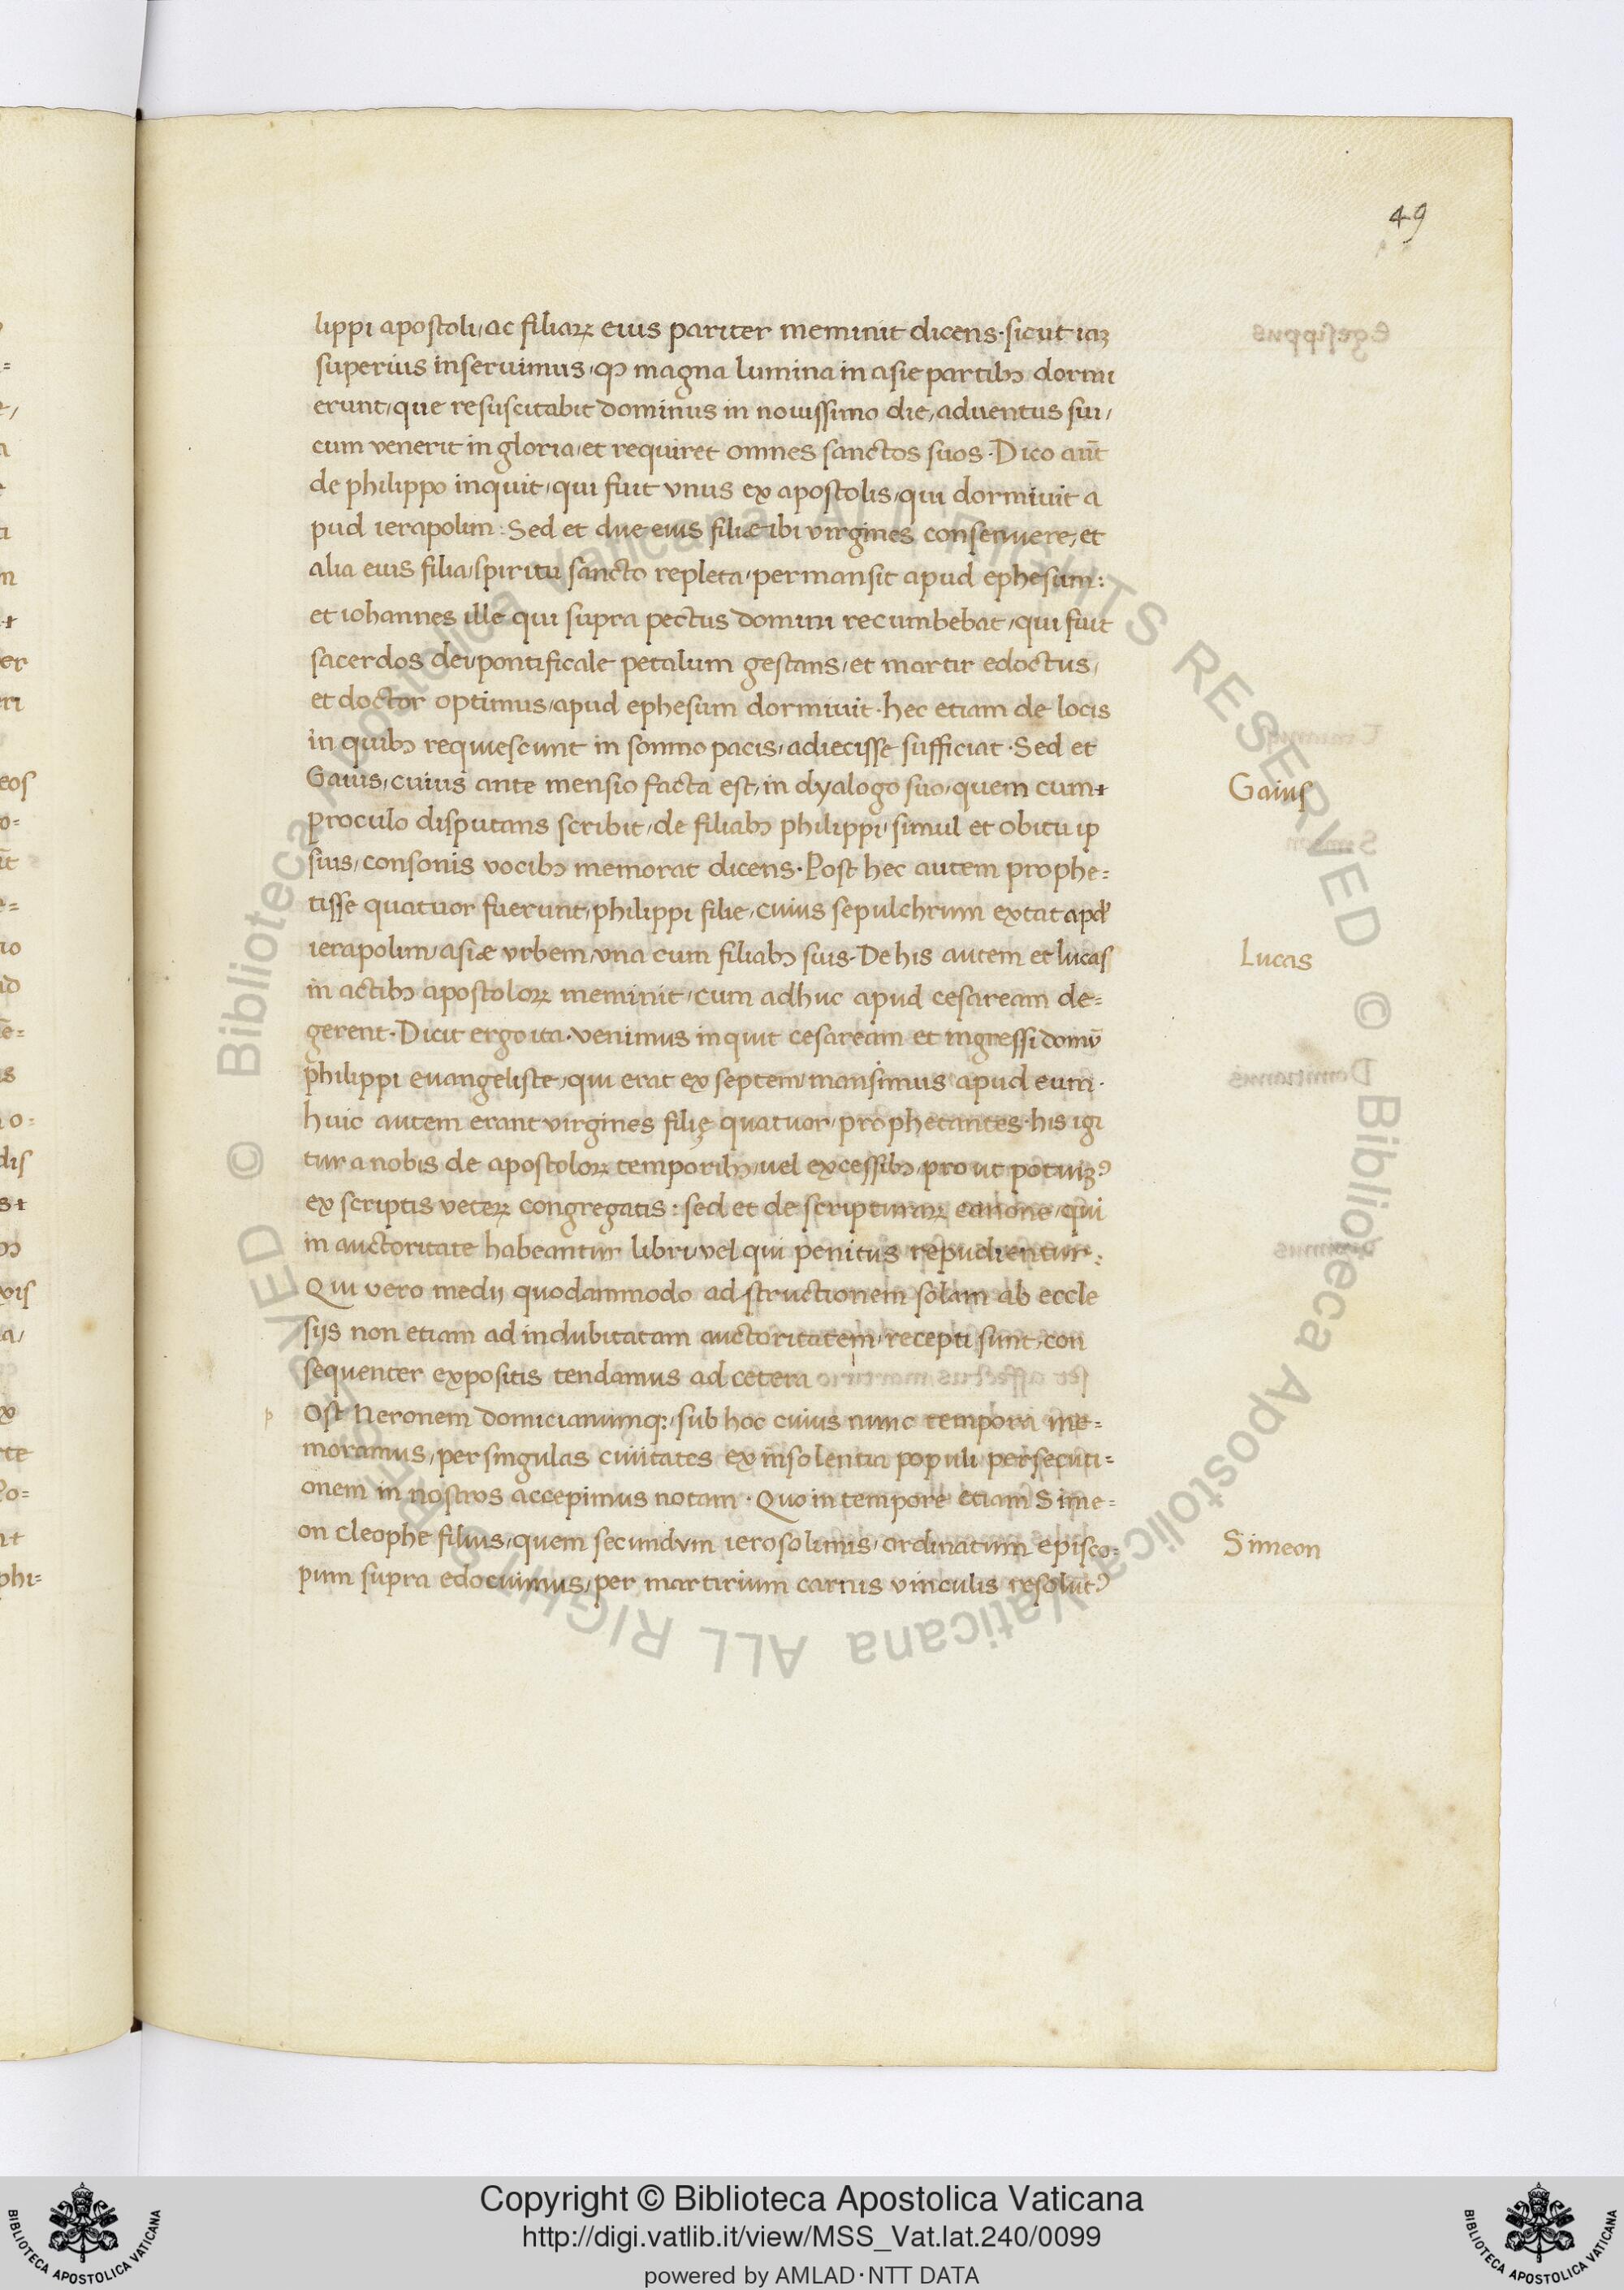 49
lippi apostoli, ac filiaꝝ eius pariter meminit dicens· sicut iaꝫ
superius inseruimus, ꝙ magna lumina in asie partibꝰ dormi
erunt, que resuscitabit dominus in nouissimo die, aduentus sui,
cum venerit in gloria, et requiret omnes sanctos suos· Dico aut̄
de philippo inquit, qui fuit vnus ex apostolis, qui dormiuit a
pud ierapolim: Sed et due eius filiæ ibi virgines consenuere, et
alia eius filia, spiritu sancto repleta, permansit apud ephesum:
et iohannes ille qui supra pectus domini recumbebat, qui fuit
sacerdos dei, pontificale petalum gestans, et martir edoctus,
et doctor optimus, apud ephesum dormiuit· hec etiam de locis
in quibꝰ requiescunt in somno pacis, adiecisse sufficiat· Sed et
Gaius, cuius ante mensio facta est, in dyalogo suo, quem cum
proculo disputans scribit, de filiabꝰ philippi, simul et obitu ip
sius, consonis vocibꝰ memorat dicens· Post hec autem prophe=
tisse quatuor fuerunt, philippi filie, cuius sepulchrum extat apd'
ierapolim, asiæ vrbem, vna cum filiabꝰ suis· De his autem et lucas
in actibꝰ apostoloꝝ meminit, cum adhuc apud cesaream de=
gerent· Dicit ergo ita· venimus inquit cesaream et ingressi domū
philippi euangeliste, qui erat ex septem, mansimus apud eum·
huic autem erant virgines filię quatuor, prophetantes· his igi
tur a nobis de apostoloꝝ temporibꝰ, vel excessibꝰ, pro ut potuiꝫꝰ
ex scriptis veteꝝ congregatis: sed et de scripturaꝝ canone, qui
in auctoritate habeantur libri, vel qui penitus repudientur:
Qui vero medij quodammodo ad structionem solam ab eccle
sijs non etiam ad indubitatam auctoritatem, recepti sunt, con
sequenter expositis tendamus ad cetera
p Ost Neronem domicianumqꝫ, sub hoc cuius nunc tempora me=
moramus, per singulas ciuitates ex insolentia populi persecuti=
onem in nostros accepimus notam· Quo in tempore etiam Sime=
on cleophe filius, quem secundvm ierosolimis, ordinatum episco=
pum supra edocuimus, per martirium carnis vinculis resolutꝰ
Gaius
Lucas
Simeon
Copyright © Biblioteca Apostolica Vaticana
http://digi.vatlib.it/view/MSS_Vat.lat.240/0099
powered by AMLAD·NTT DATA
BIBLIOTECA APOSTOLICA VATICANA
BIBLIOTECA APOSTOLICA VATICANA
© Biblioteca Apostolica Vaticana ALL RIGHTS RESERVED © Biblioteca Apostolica Vaticana ALL RIGHTS RESERVED